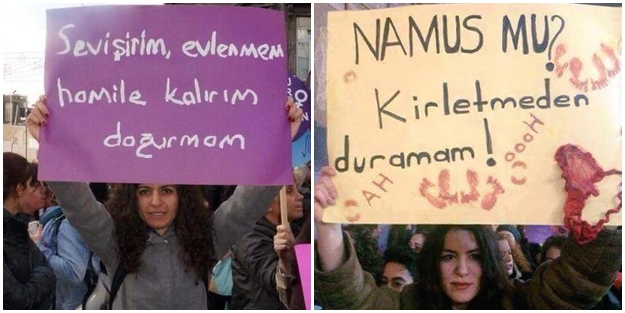 Sevişirim, evlenmem
hamile kalırım
doğurmam
NAMUS MU?
Kirletmeden
duramam!
AH
OOOH